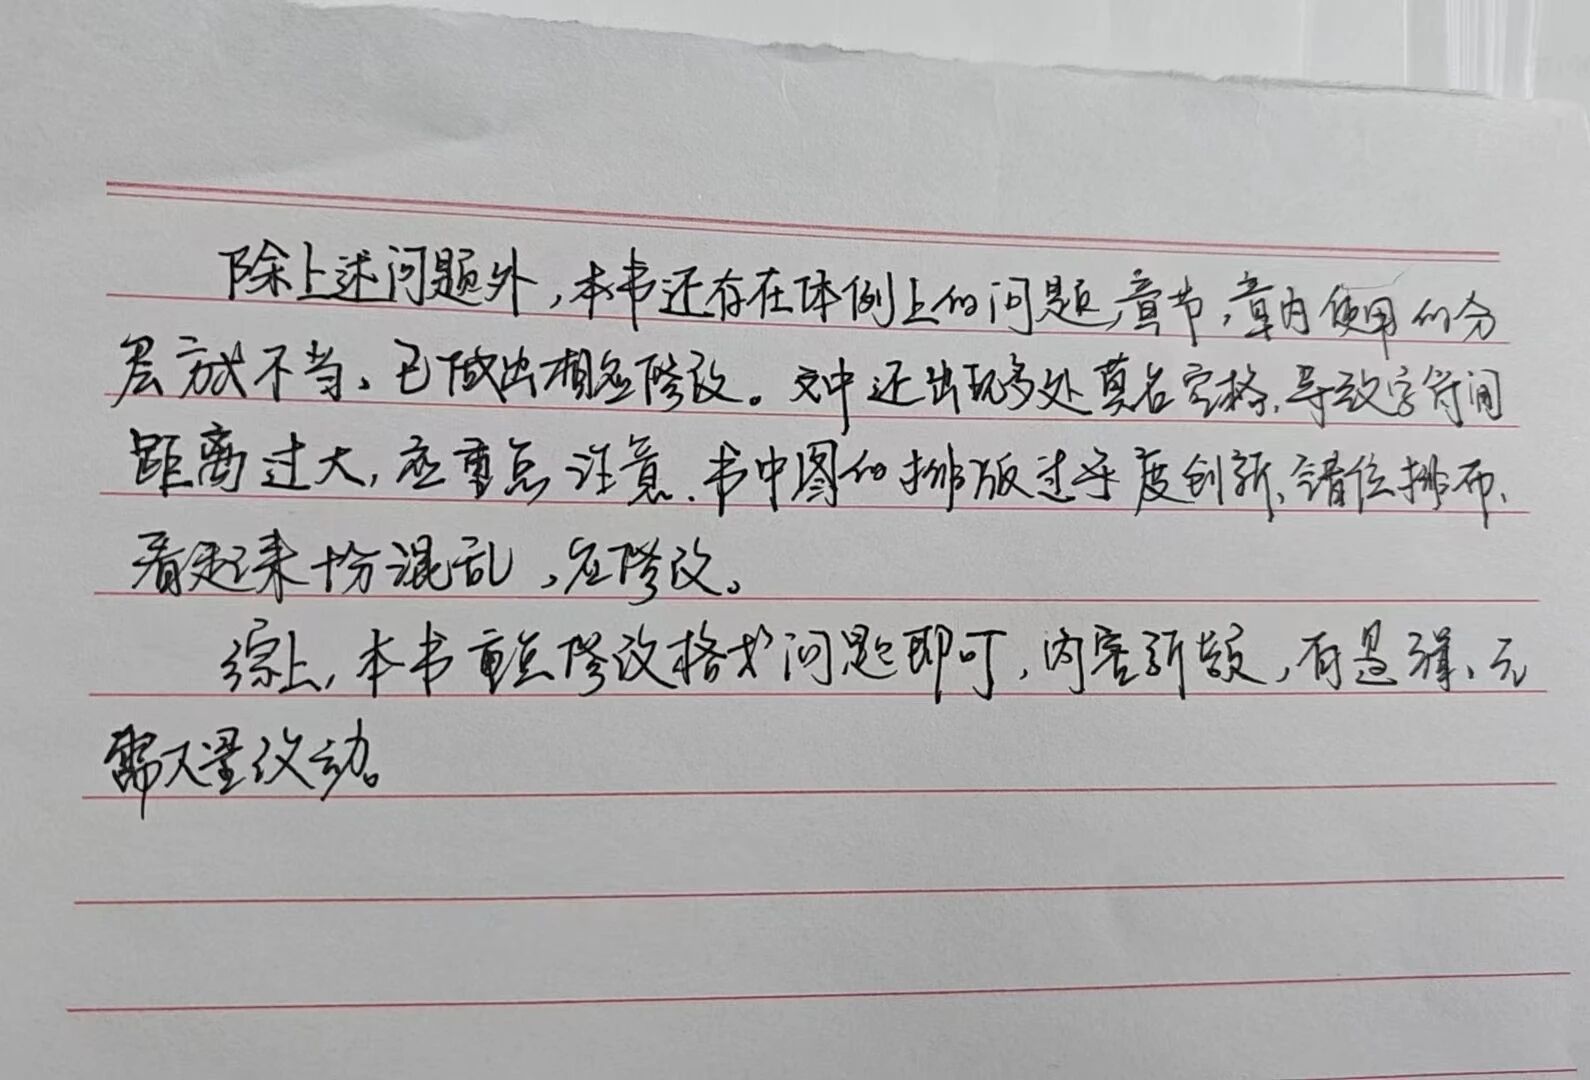 除上述问题外，本书还存在体例上的问题，章节，章内使用的分
层方式不当、已做出相应修改。文中还出现多处莫名空格，导致字符间
距离过大，应重点注意。书中图的排版过于度创新、错位排布、
看起来十分混乱，应修改。
综上，本书重点修改格式问题即可，内容新颖，有逻辑、无
需大量改动。